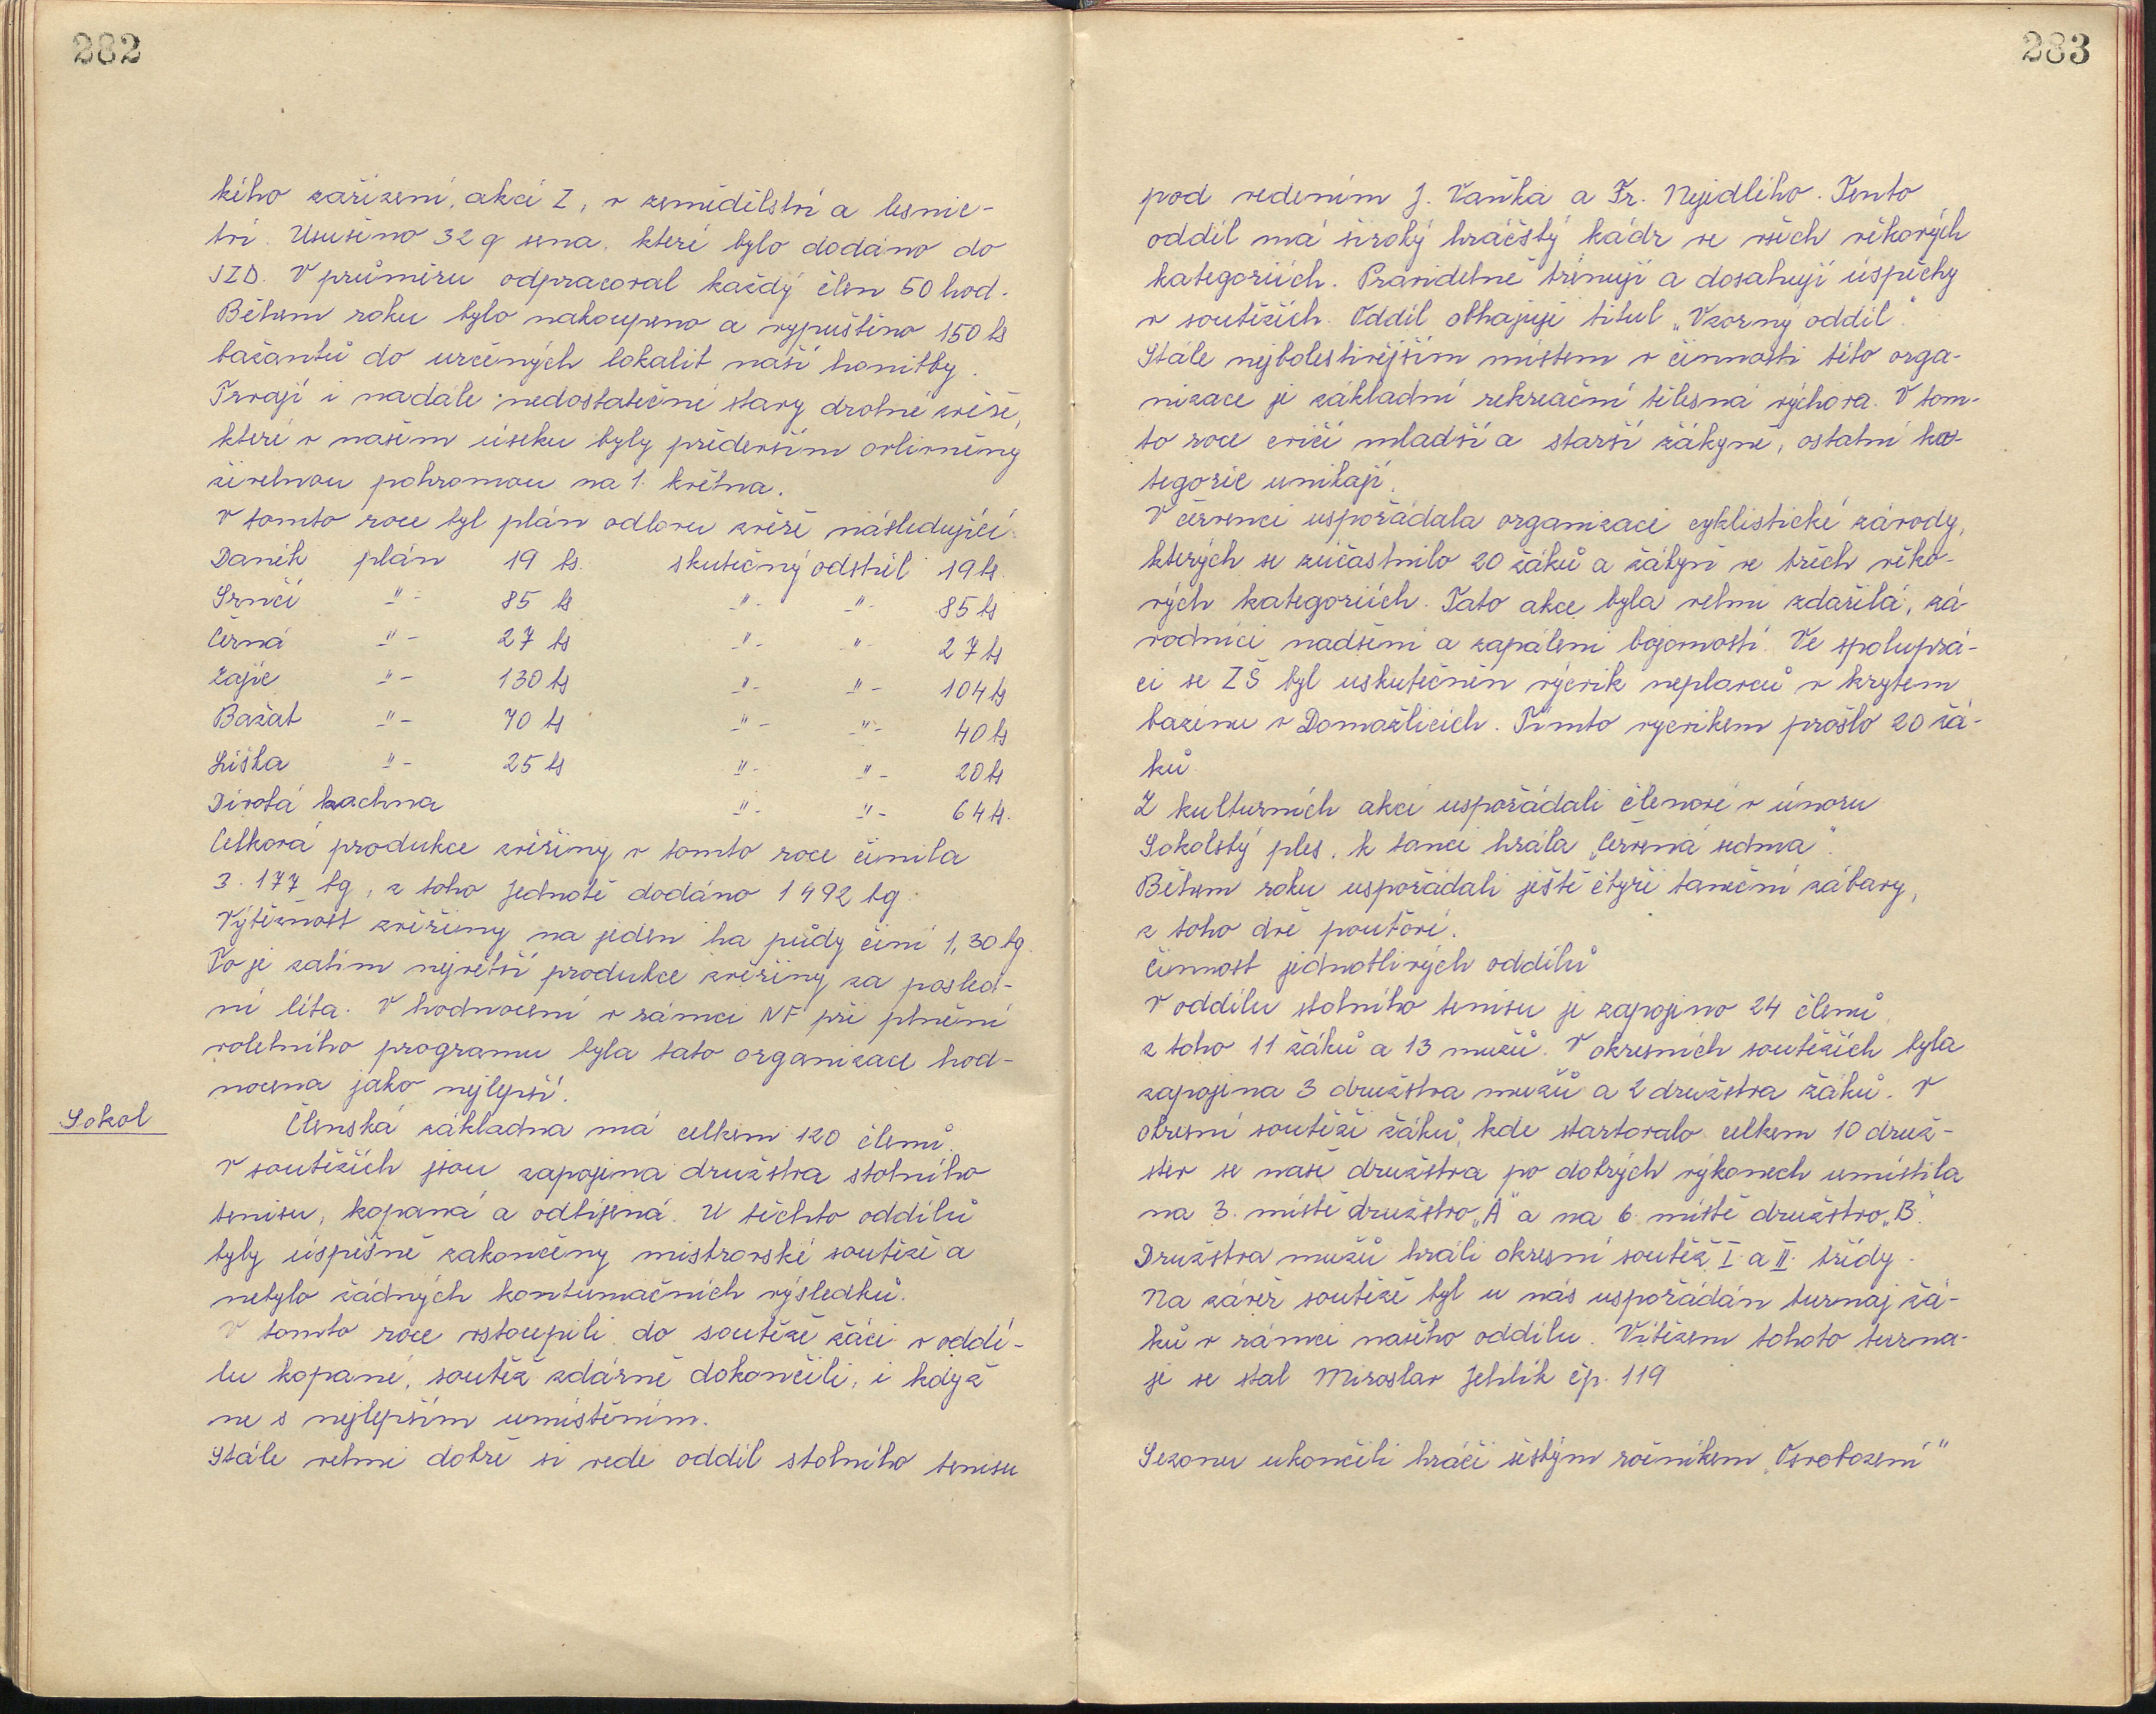 282
kého zařízení, akcí Z, v zemědělství a lesnic-
tví. Usušeno 32 q sena, které bylo dodáno do
JZD. V průměru odpracoval každý člen 50 hod.
Během roku bylo nakoupeno a vypuštěno 150 ks
bažantů do určených lokalit naší honitby.
Trvají i nadále nedostatečné stavy drobné zvěře,
které v našem úseku byly především ovlivněny
živelnou pohromou na 1. května.
V tomto roce byl plán odlovu zvěře následující:
Daněk plán 19 ks. skutečný odstřel 19 ks.
Srnčí -"- 85 ks -"- -"- 85 ks
Černá -"- 27 ks -"- -"- 27 ks
Zajíc -"- 130 ks -"- -"- 104 ks
Bažat -"- 70 ks -"- -"- 40 ks
Liška -"- 25 ks -"- -"- 20 ks
Divoká kachna -"- -"- 64 ks.
Celková produkce zvěřiny v tomto roce činila
3.177 kg, z toho Jednotě dodáno 1492 kg.
Výtěžnost zvěřiny na jeden ha půdy činí 1,30 kg.
To je zatím největší produkce zvěřiny za posled-
ní léta. V hodnocení v rámci NF při plnění
volebního programu byla tato organizace hod-
nocena jako nejlepší.
Sokol
Členská základna má celkem 120 členů.
V soutěžích jsou zapojena družstva stolního
tenisu, kopaná a odbíjená. U těchto oddílů
byly úspěšně zakončeny mistrovské soutěže a
nebylo žádných kontumačních výsledků.
V tomto roce vstoupili do soutěže žáci v oddí-
lu kopané, soutěž zdárně dokončili, i když
ne s nejlepším umístěním.
Stále velmi dobře si vede oddíl stolního tenisu
283
pod vedením J. Vaňka a Fr. Nejedlého. Tento
oddíl má široký hráčský kádr ve všech věkových
kategoriích. Pravidelně trénují a dosahují úspěchy
v soutěžích. Oddíl obhajuje titul „Vzorný oddíl".
Stále nejbolestivějším místem v činnosti této orga-
nizace je základní rekreační tělesná výchova. V tom-
to roce cvičí mladší a starší žákyně, ostatní ka-
tegorie unikají.
V červenci uspořádala organizace cyklistické závody,
kterých se zúčastnilo 20 žáků a žákyň ve třech věko-
vých kategoriích. Tato akce byla velmi zdařilá, zá-
vodníci nadšeni a zapáleni bojovností. Ve spoluprá-
ci se ZŠ byl uskutečněn výcvik neplavců v krytém
bazénu v Domažlicích. Tímto výcvikem prošlo 20 žá-
ků.
Z kulturních akcí uspořádali členové v únoru
Sokolský ples, k tanci hrála „Červená sedma".
Během roku uspořádali ještě čtyři taneční zábavy,
z toho dvě pouťové.
Činnost jednotlivých oddílů
V oddílu stolního tenisu je zapojeno 24 členů
z toho 11 žáků a 13 mužů. V okresních soutěžích byla
zapojena 3 družstva mužů a 2 družstva žáků. V
okresní soutěži žáků, kde startovalo celkem 10 druž-
stev se naše družstva po dobrých výkonech umístila
na 3. místě družstvo „A" a na 6. místě družstvo „B".
Družstva mužů hráli okresní soutěž I. a II. třídy.
Na závěr soutěže byl u nás uspořádán turnaj žá-
ků v rámci našeho oddílu. Vítězem tohoto turna-
je se stal Miroslav Jehlík čp. 119
Sezonu ukončili hráči šestým ročníkem „Osvobození"